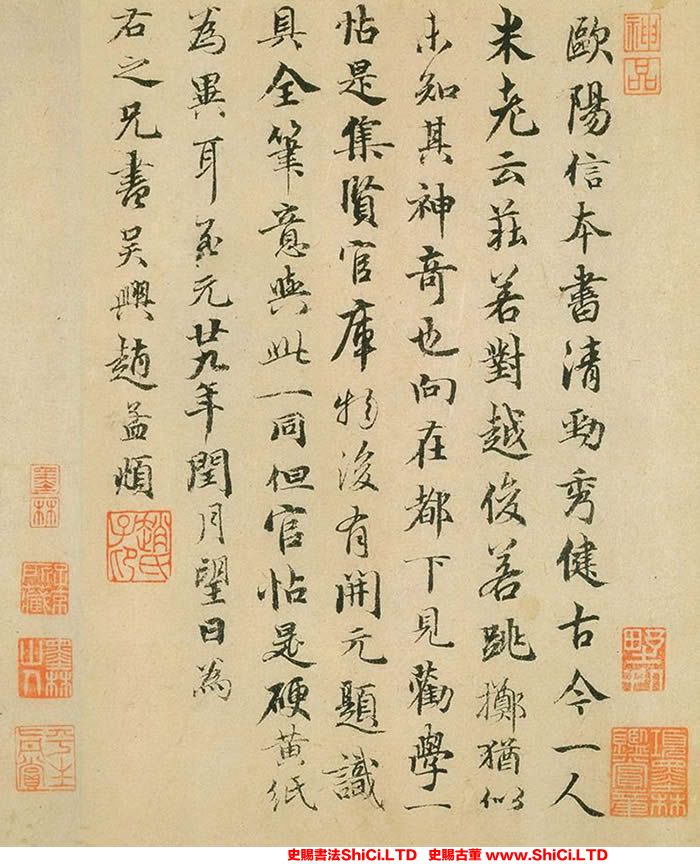 歐陽信本書清勁秀健古今一人
米老云莊若對越俊若跳擲猶似
未知其神奇也向在都下見勸學一
帖是集賢官庫物後有開元題識
具全筆意與此一同但官帖是硬黃紙
為異耳至元廿九年閏月望日為
右之兄書吳興趙孟頫
神品
項墨林鑑賞章
趙氏子昂
墨林
墨林山人
平生真賞
史賜書法ShiCi.LTD 史賜古董 www.ShiCi.LTD